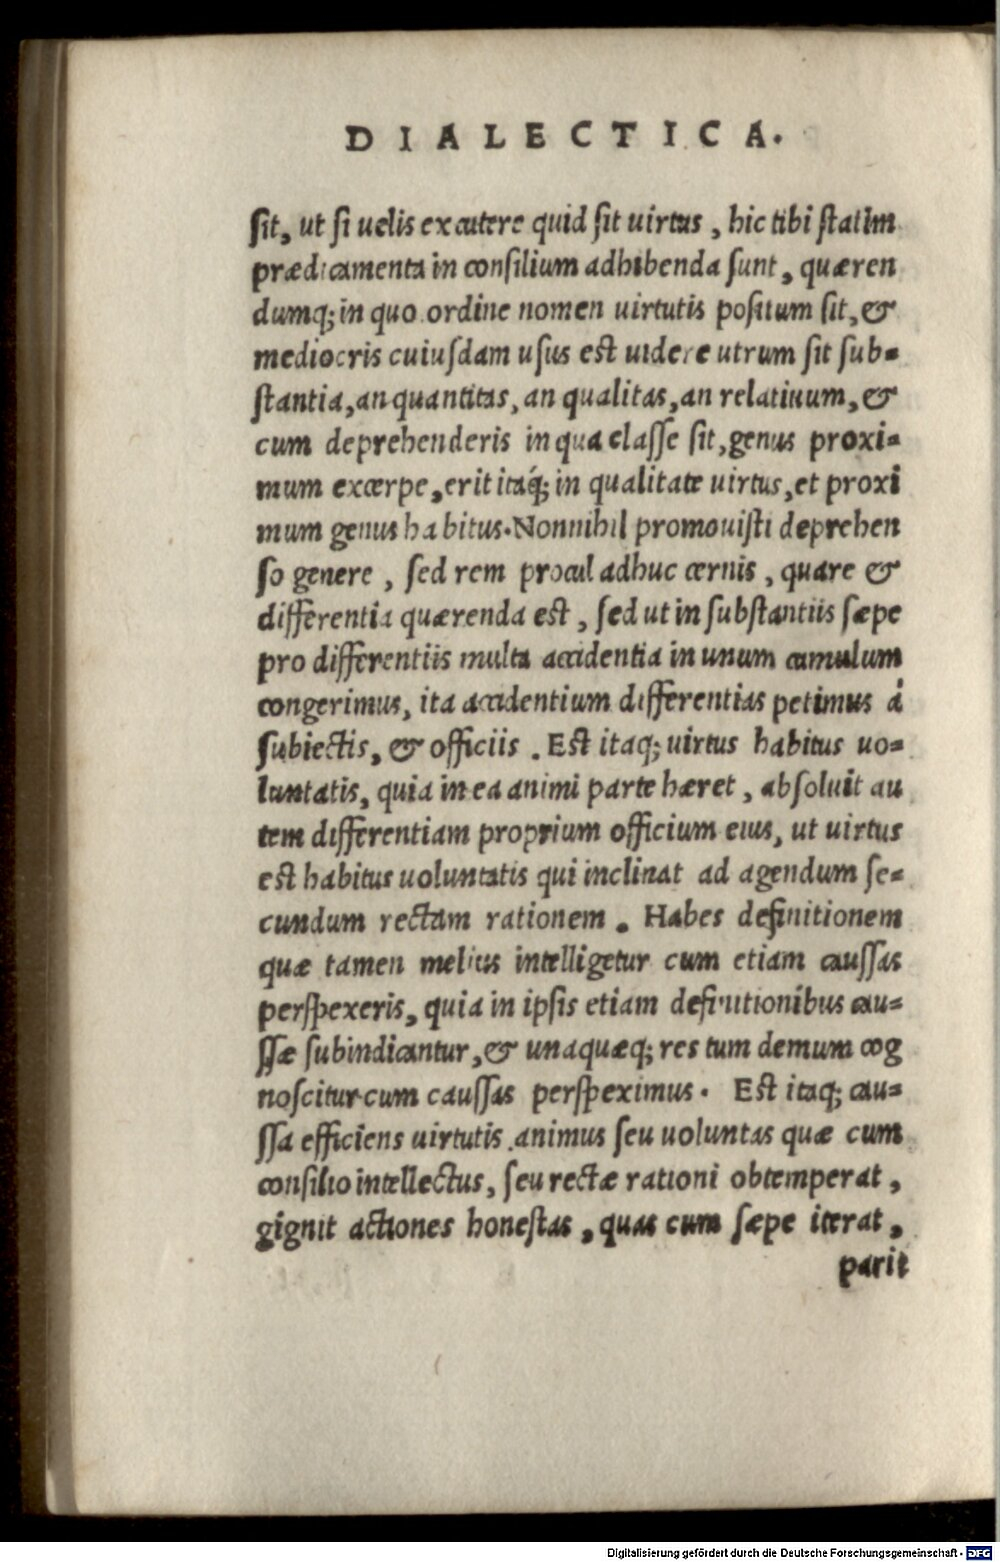 DIALECTICA.
ſit, ut ſi uelis excutere quid ſit uirtus, hic tibi ſtatim
prædicamenta in conſilium adhibenda ſunt, quæren
dumq; in quo ordine nomen uirtutis poſitum ſit, &
mediocris cuiuſdam uſus est uidere utrum ſit ſub-
ſtantia, an quantitas, an qualitas, an relatiuum, &
cum deprehenderis in qua claſſe ſit, genus proxi-
mum excerpe, erit itaq́; in qualitate uirtus, et proxi
mum genus habitus. Nonnihil promouiſti deprehen
ſo genere, ſed rem procul adhuc cernis, quare &
differentia quærenda est, ſed ut in ſubſtantiis ſæpe
pro differentiis multa accidentia in unum cumulum
congerimus, ita accidentium differentias petimus á
ſubiectis, & officiis. Est itaq; uirtus habitus uo-
luntatis, quia in ea animi parte hæret, abſoluit au
tem differentiam proprium officium eius, ut uirtus
est habitus uoluntatis qui inclinat ad agendum ſe-
cundum rectam rationem. Habes definitionem
quæ tamen melius intelligetur cum etiam cauſſas
perſpexeris, quia in ipſis etiam definitionibus cau-
ſſæ ſubindicantur, & unaquæq; res tum demum cog
noſcitur cum cauſſas perſpeximus. Est itaq; cau-
ſſa efficiens uirtutis animus ſeu uoluntas quæ cum
conſilio intellectus, ſeu rectæ rationi obtemperat,
gignit actiones honeſtas, quas cum ſæpe iterat,
parit
Digitalisierung gefördert durch die Deutsche Forschungsgemeinschaft - DFG